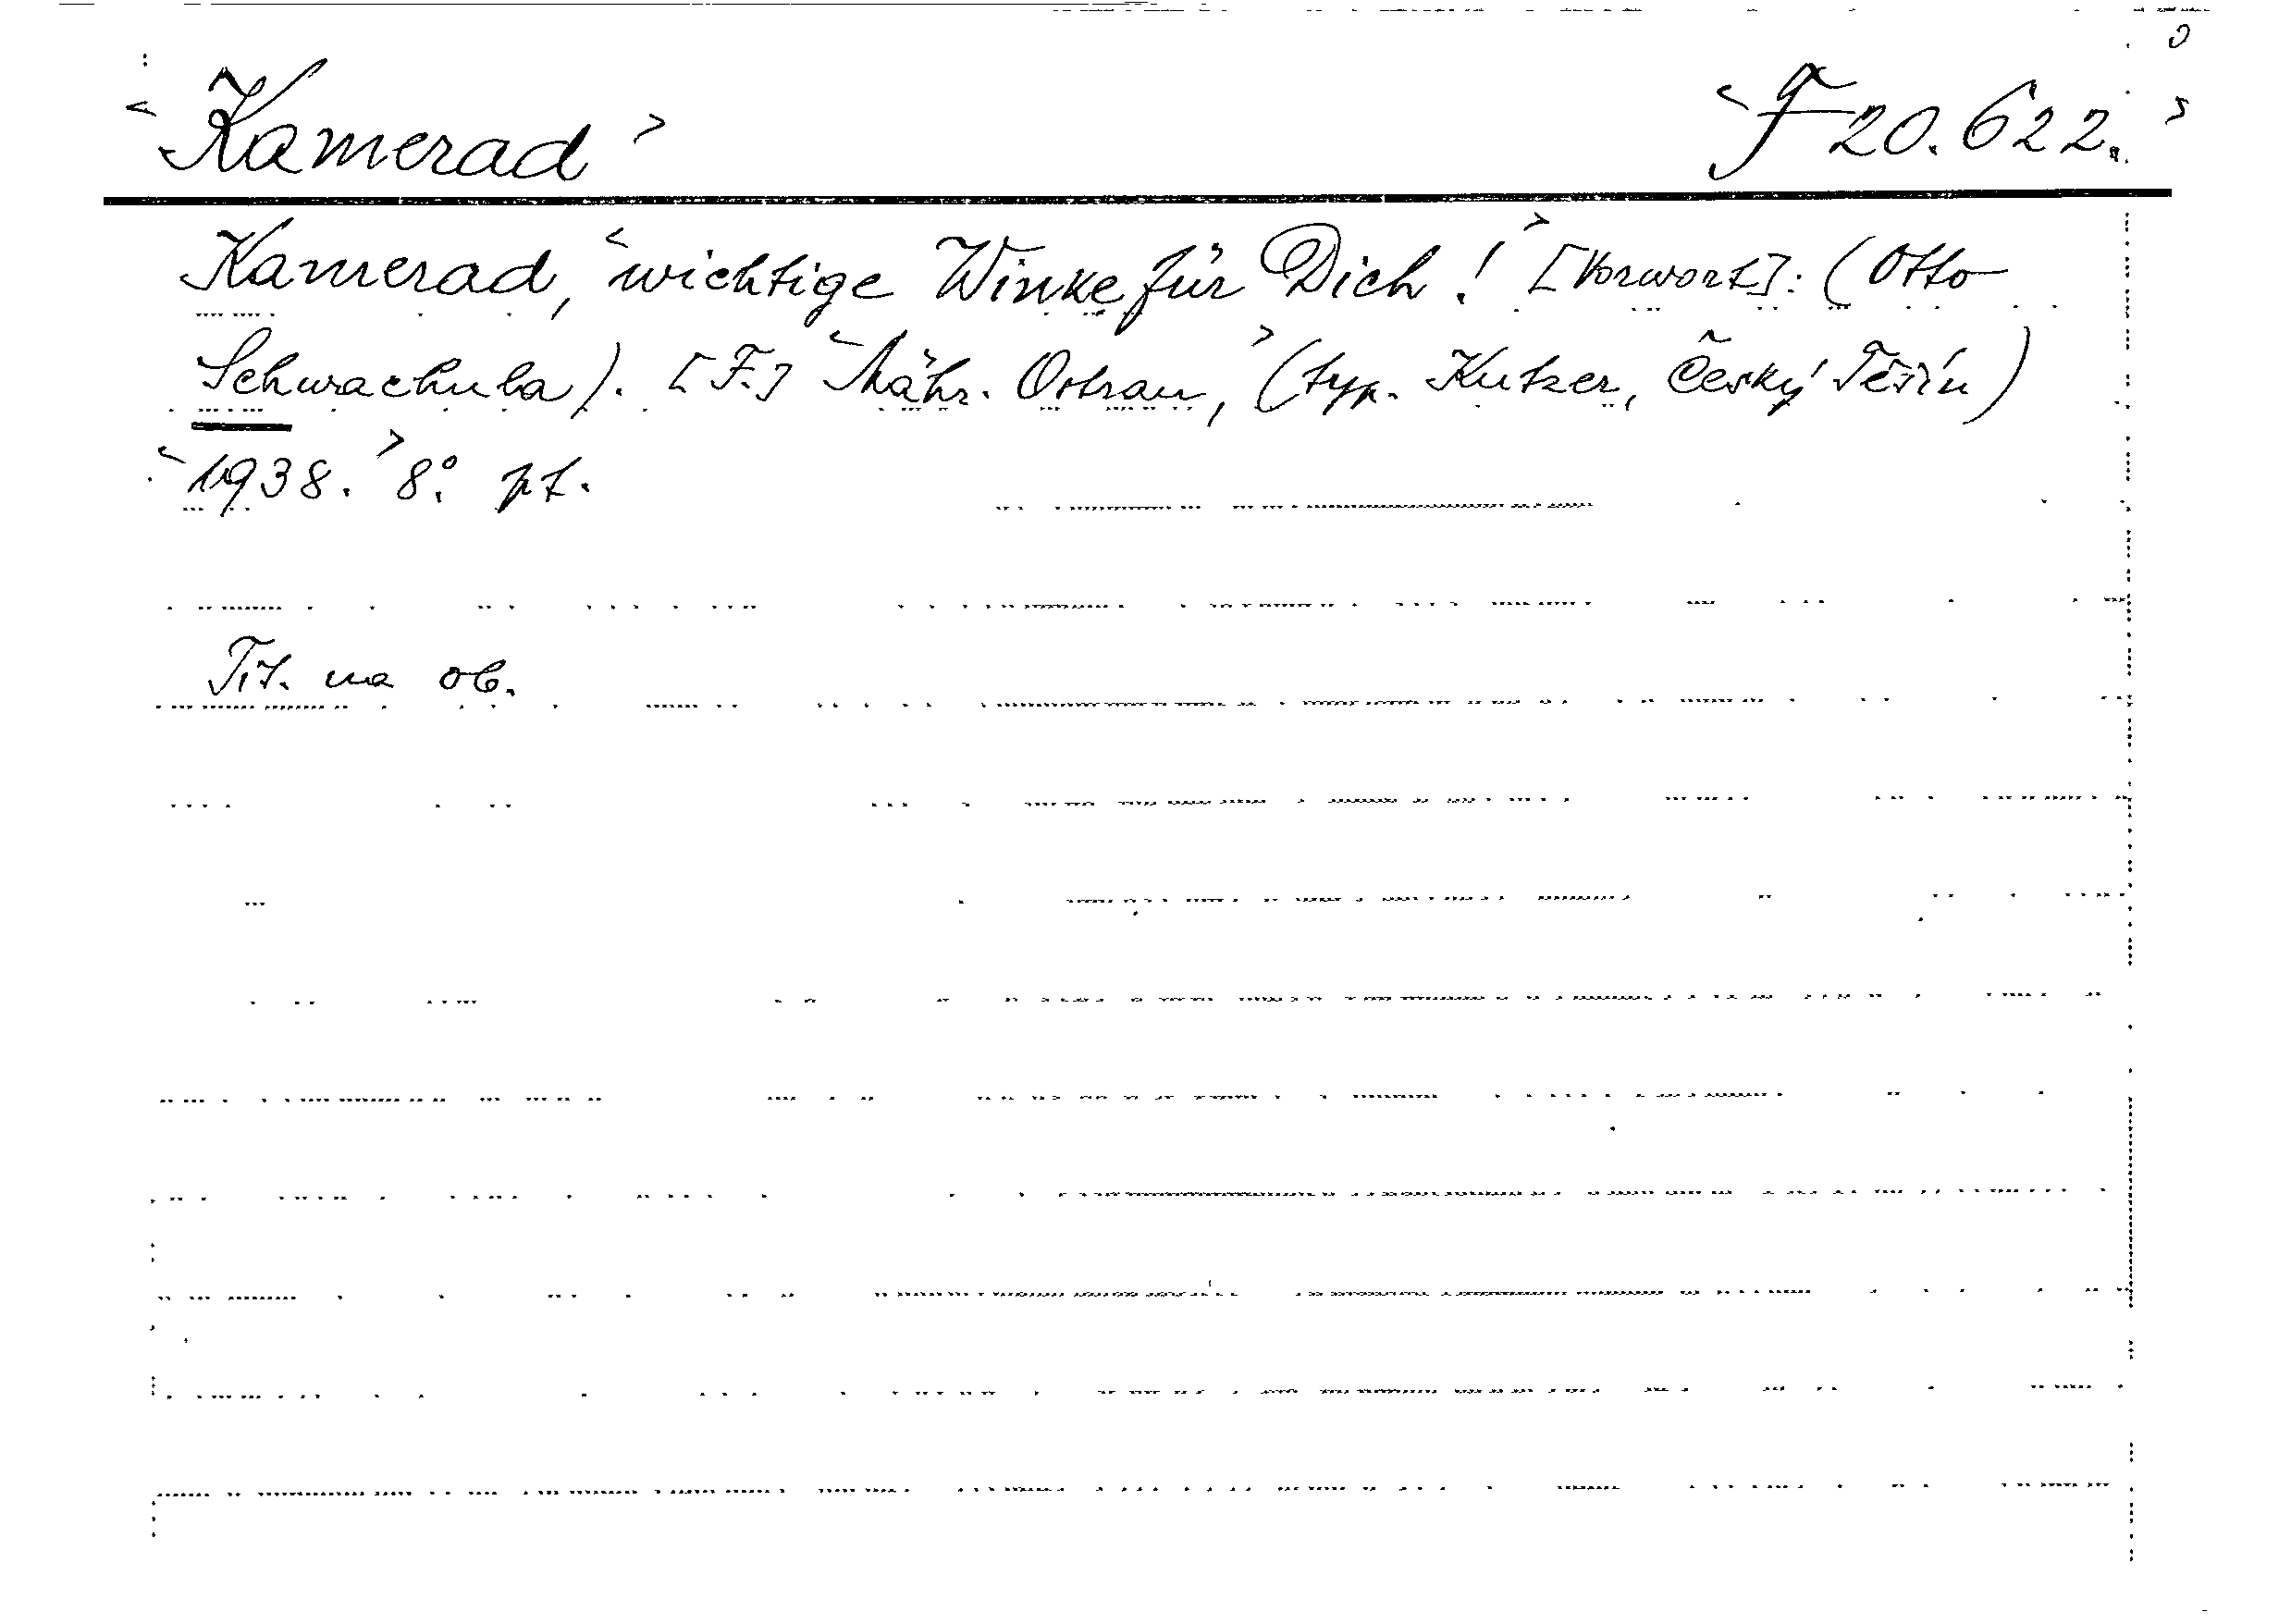 <Kamerad> <F 20.622.>
Kamerad, <wichtige Winke für Dich!> [Vorwort]: (Otto
Schwachula). [F.] <Mähr. Ostrau,> (typ. Kutzer, Český Těšín)
<1938.> 8°. pt.
Tit. na ob.